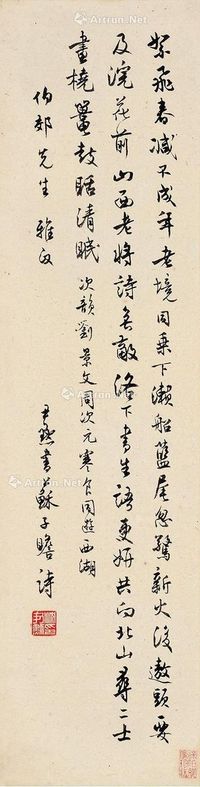 絮飛春減不成年老境同乘下瀨船藍尾忽驚新火後遨頭要
及浣花前山西老將詩無敵洛下書生語更妍共向北山尋二士
畫橈鼉鼓聒清眠 次韻劉景文同次元寒食同遊西湖
伯郊先生 雅正
尹默書蘇子瞻詩